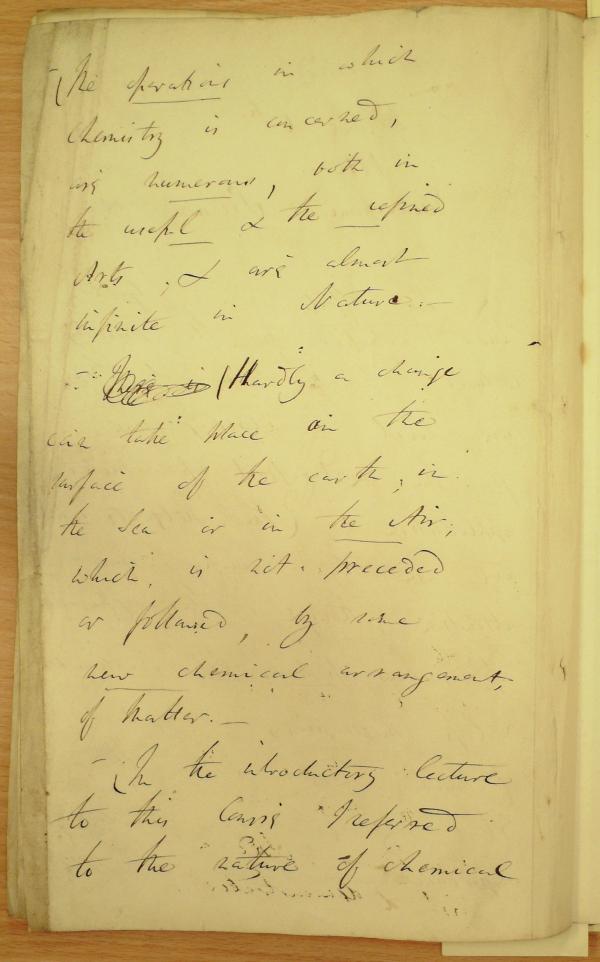 - (The operations in which
chemistry is concerned,
are numerous, both in
the useful & the refined
Arts, & are almost
infinite in Nature. -
- (Hardly a change
can take place on the
surface of the earth, in
the Sea or in the Air,
which, is not preceded
or followed, by some
new chemical arrangement,
of Matter. -
- (In the introductory lecture
to this Course I referred
to the nature of chemical